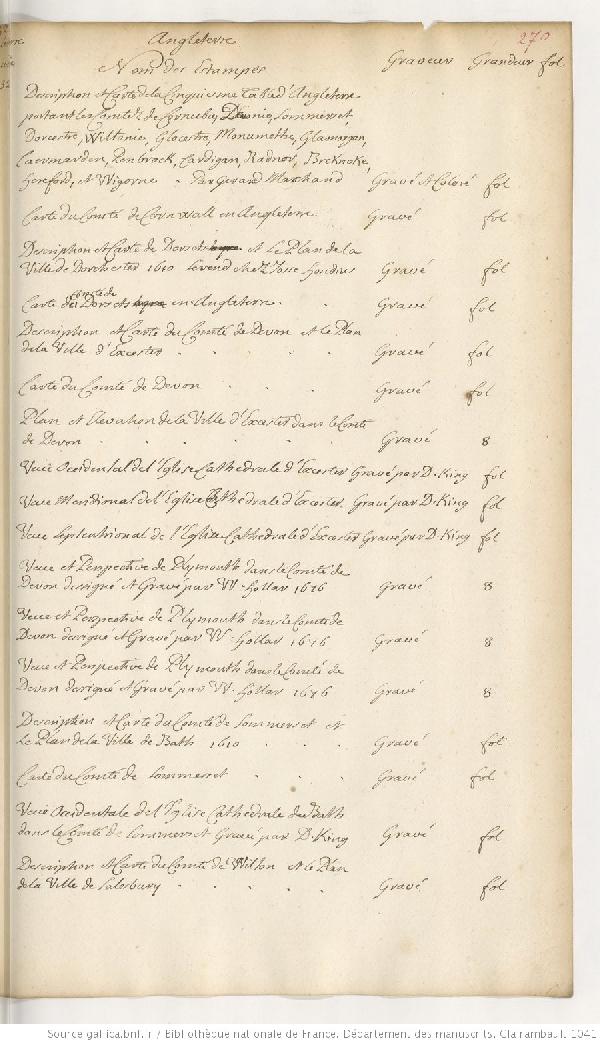 Angleterre 270
Nom des Estampes Graveur Grandeur fol
Description et Carte de la Cinquiesme Table d'Angleterre
portant les Comtez de Cornubie, Devonie, Sommerset
Dorcestre, Wiltonie, Glocestre, Monumethe, Glamorgan,
Caermarden, Penbrock, Cardigan, Radnor, Brecknoke,
Hereford, et Wigorne - Par Gerard Marchand Gravé et Coloré fol
Carte du Comté de Cornwall en Angleterre Gravé fol
Description et Carte de Dorset et Le Plan de la
Ville de Dorchester 1610 Se vend chez Josse Hondius Gravé fol
Comté de
Carte de Dorset en Angleterre . . Gravé fol
Description et Carte du Comté de Devon et le Plan
de la Ville d'Excester . . . . Gravé fol
Carte du Comté de Devon . . . Gravé fol
Plan et Elevation de la Ville d'Excester dans le Comté
de Devon . . . . . Gravé 8
Veuë Occidental de l'Eglise Cathedrale d'Excester Gravé par D. King fol
Veuë Meridional de l'Eglise Cathedrale d'Excester Gravé par D. King fol
Veuë Septentrional de l'Eglise Cathedrale d'Excester Gravé par D. King fol
Veuë et Perspective de Plymouth dans le Comté de
Devon designé et Gravé par W. Hollar 1676 Gravé 8
Veuë et Perspective de Plymouth dans le Comté de
Devon designé et Gravé par W. Hollar 1676 Gravé 8
Veuë et Perspective de Plymouth dans le Comté de
Devon designé et Gravé par W. Hollar 1676 Gravé 8
Description et Carte du Comté de Sommerset et
Le Plan de la Ville de Bath 1610 . . . Gravé fol
Carte du Comté de Sommerset . . . Gravé fol
Veuë Occidentale de l'Eglise Cathedrale de Bath
dans le Comté de Sommerset Gravé par D. King Gravé fol
Description et Carte du Comté de Wilton et le Plan
de la Ville de Salesbury . . . . Gravé fol
Source gallica.bnf.fr / Bibliothèque nationale de France. Département des manuscrits. Clairambault 1041